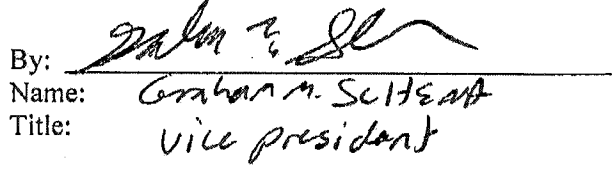 By:
Name: Graham M.
Title: vice president